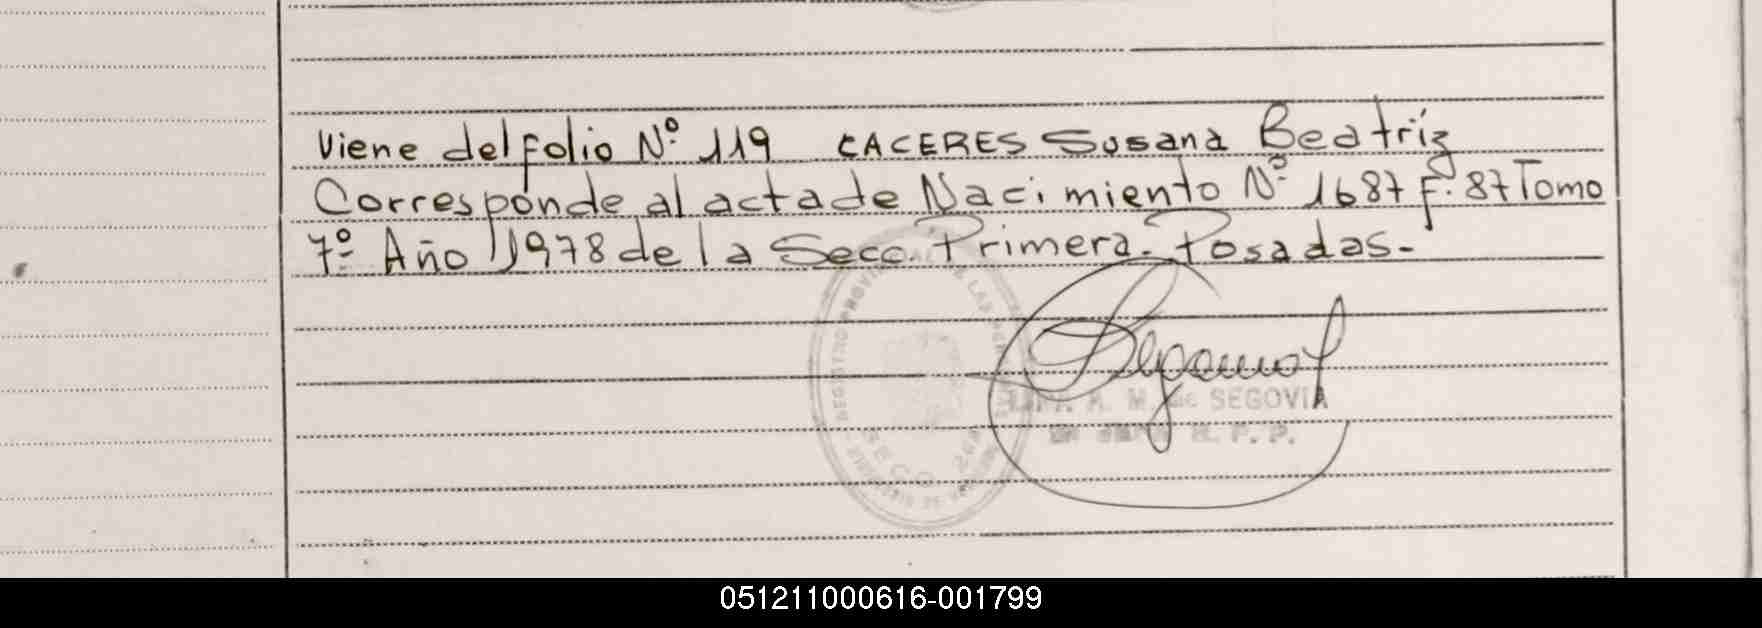 Viene del folio Nº 119 CACERES Susana Beatriz
Corresponde al acta de Nacimiento Nº 1687 F. 87 Tomo
7º Año 1978 de la Secc. Primera. Posadas.-
REGISTRO PROVINCIAL DE LAS
SECC.
M. de SEGOVIA
R. P. P.
051211000616-001799